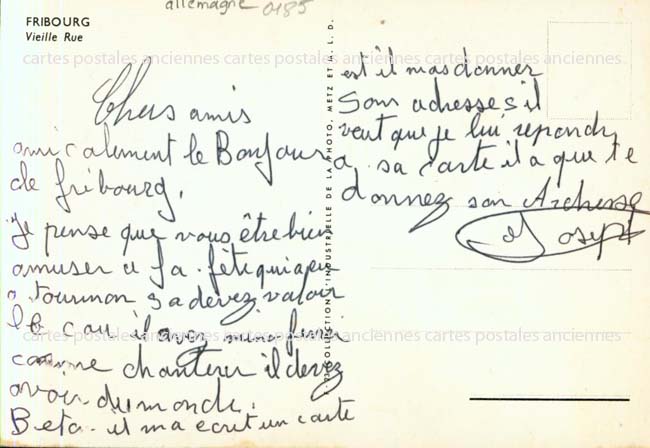 allemagne 0185
FRIBOURG
Vieille Rue
cartes postales anciennes cartes postales anciennes cartes postales anciennes
Chers amis
amicalement le Bonjour
de fribourg.
Je pense que vous être bien
amuser a fa fête
a tourmon sa devez valoir
le cou il avez
comme chanterer il devez
avoir du monde.
Beta il ma ecrit un carte
est il mas donner
Son adresse s il
veut que je lui repondre
a sa carte il a que te
donnez son Adresse
Joseph
COLLECTION L'INDUSTRIELLE DE LA PHOTO, METZ ET M. L. D.
cartes postales anciennes cartes postales anciennes cartes postales anciennes